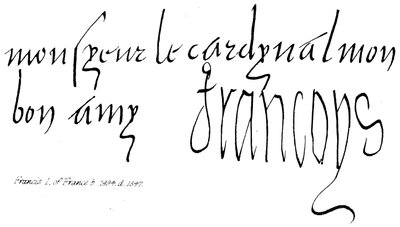 monsyeur le cardynal mon
bon amy francoys
Francis I. of France b. 1494. d. 1547.